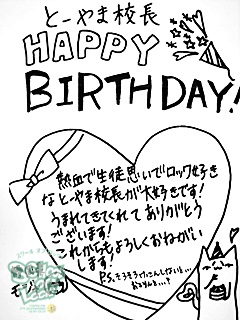 とーやま校長
HAPPY
BIRTHDAY!
熱血で生徒思いでロック好き
なとーやま校長が大好きです!
うまれてきてくれてありがとう
ございます!
これからもよろしくおねがい
します!
P.S. そろそろけっこんしないと…